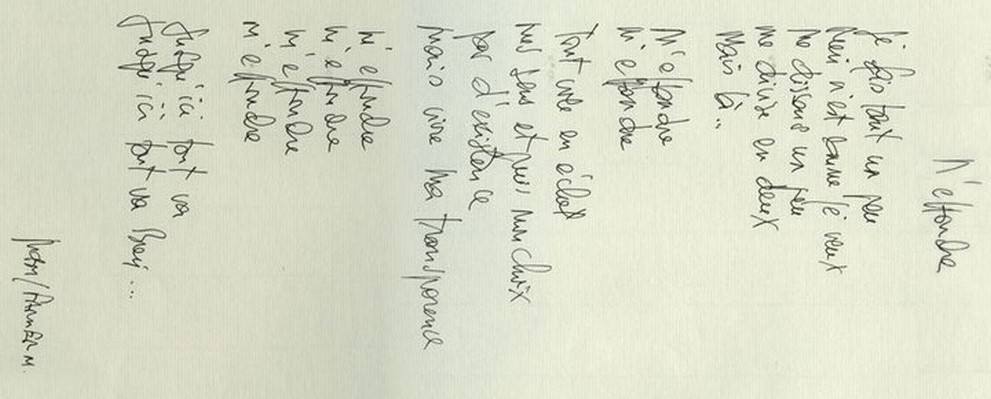 M'effondre
Je fais tout un peu
Rien n'est comme je veux
Me dissous un peu
me divise en deux
Mais là..
M'effondre
M'effondre
Tout vole en éclat
mes sens et puis mon choix
pas d'existence
mais vive ma transparence
M'effondre
M'effondre
M'effondre
M'effondre
Jusqu'ici tout va
Jusqu'ici tout va Bien...